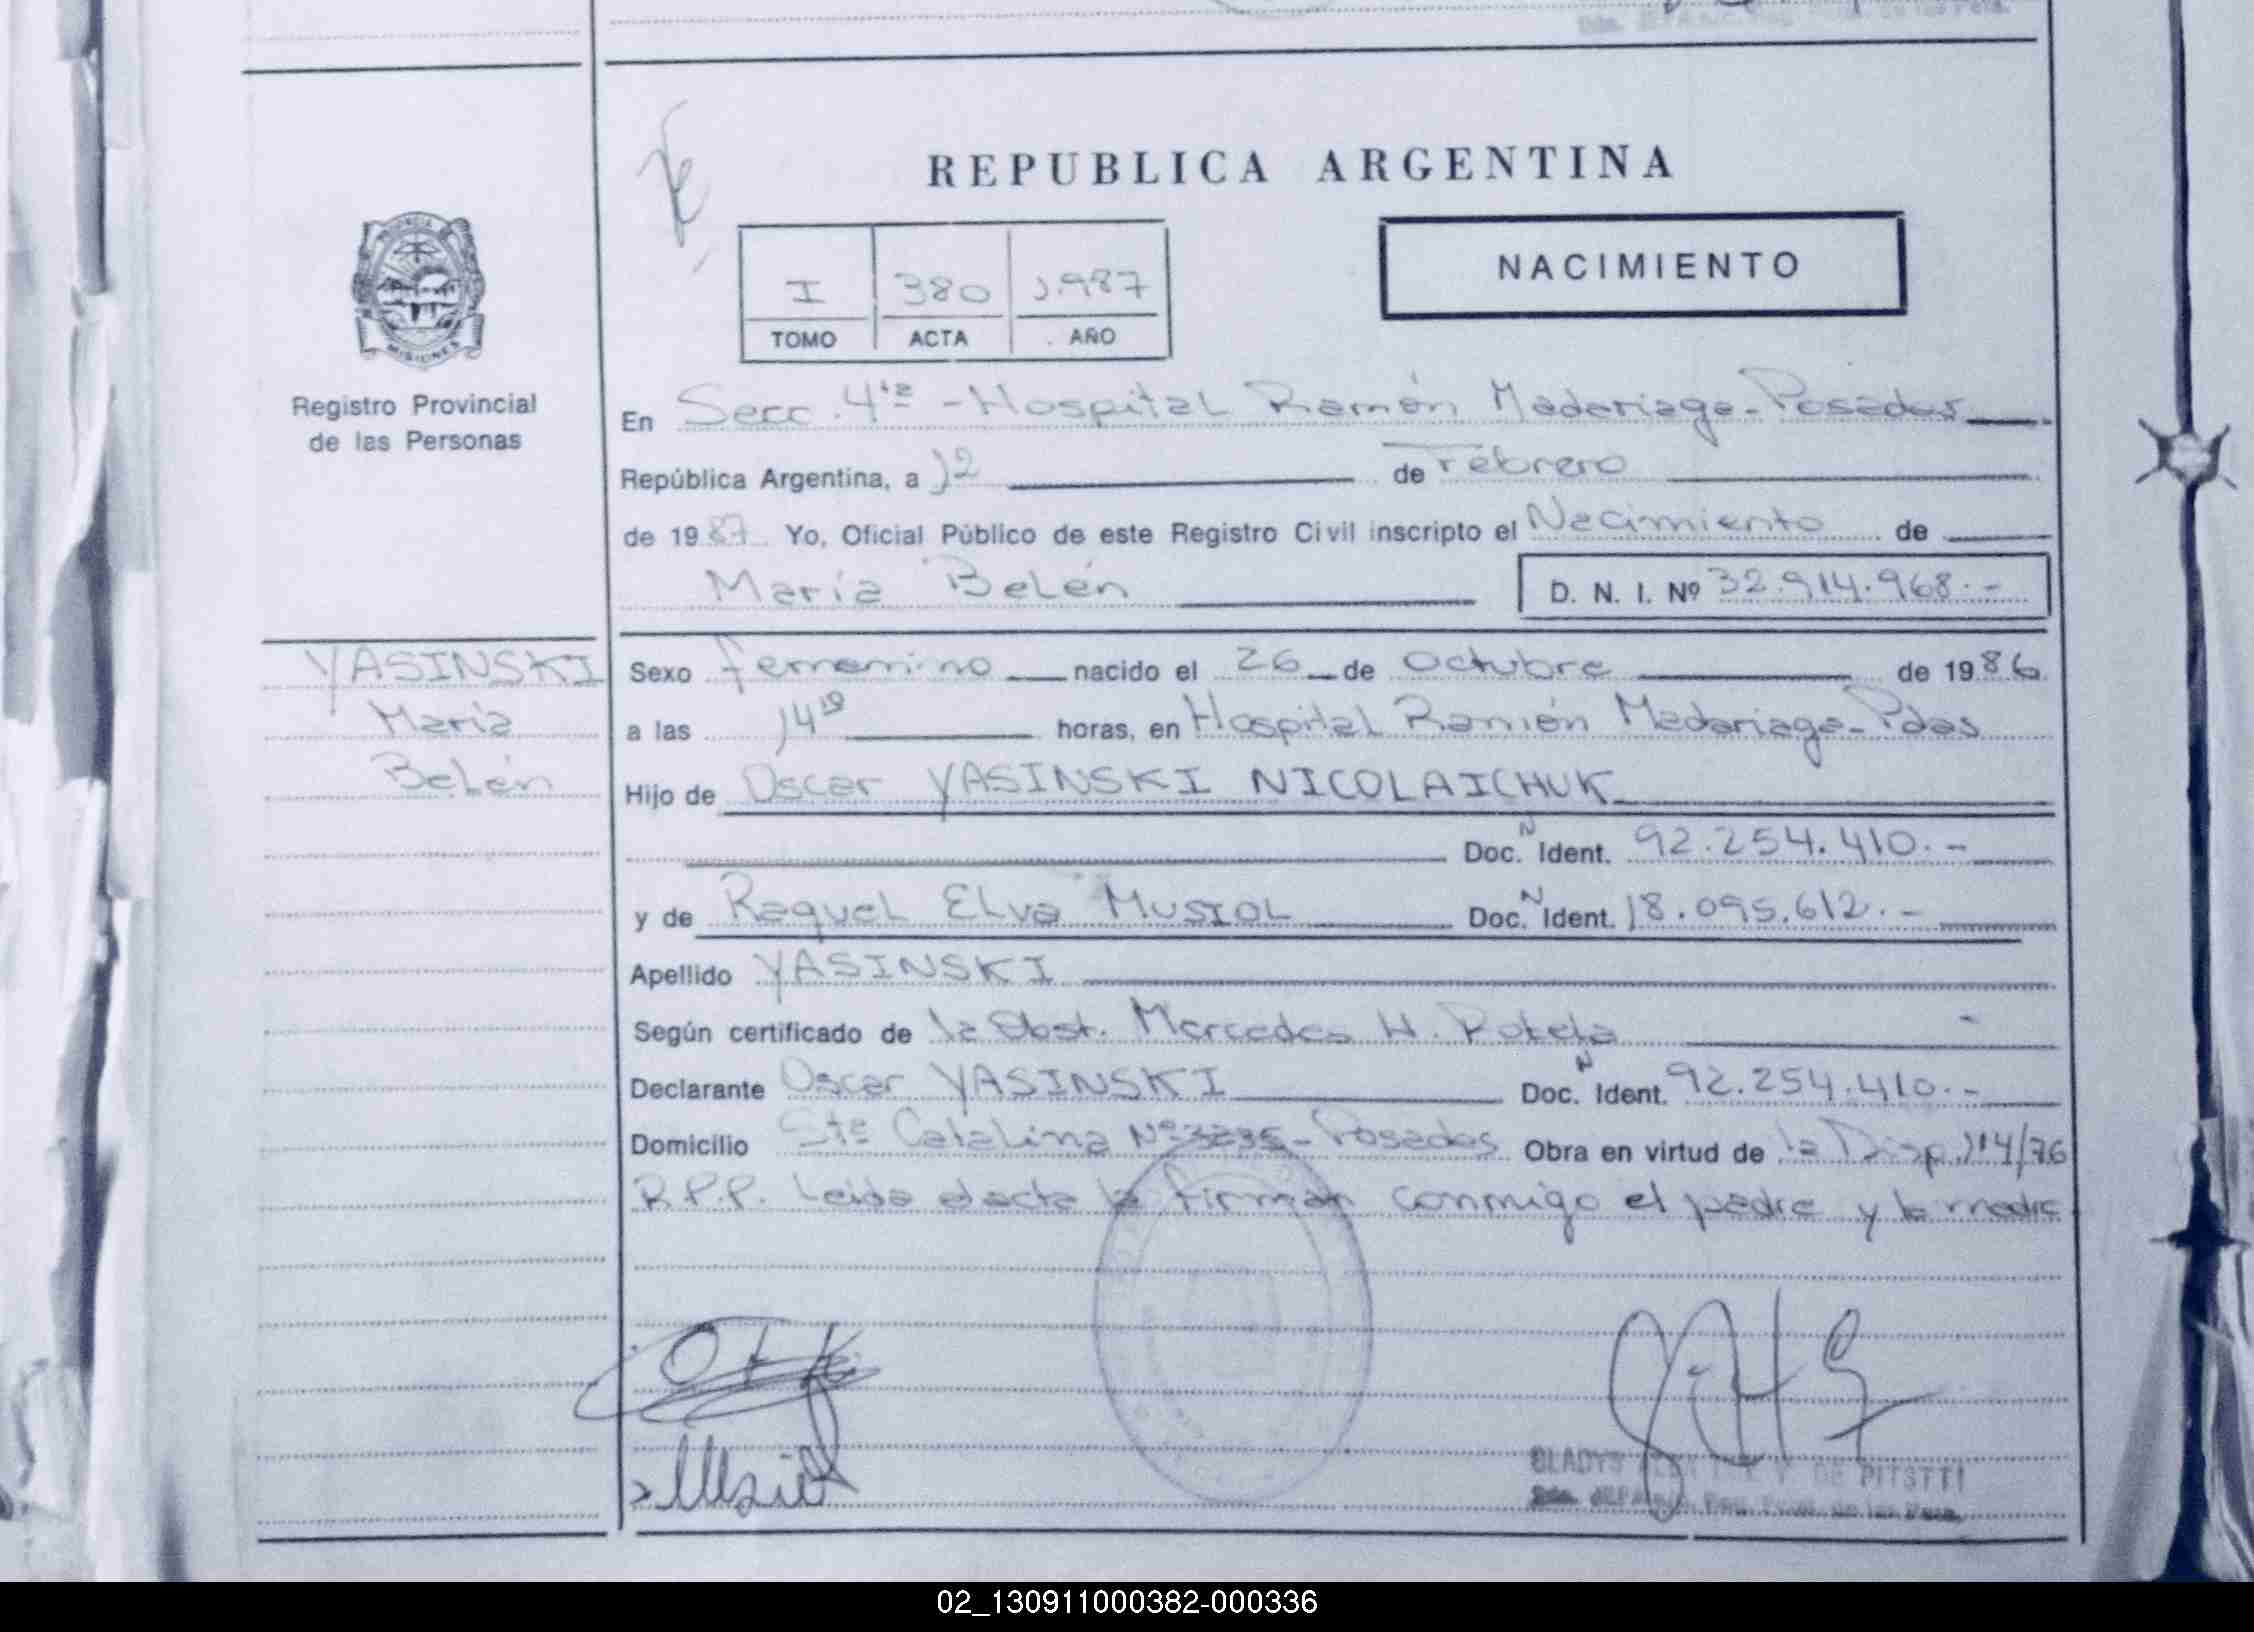 REPUBLICA ARGENTINA
NACIMIENTO
I 380 1.987
TOMO ACTA AÑO
PROVINCIA DE
MISIONES
Registro Provincial
de las Personas
En Secc. 4ta - Hospital Ramón Madariaga - Posadas
República Argentina, a 12 de Febrero
de 1987 Yo, Oficial Público de este Registro Civil inscripto el Nacimiento de
María Belén D. N. I. Nº 32.914.968.-
YASINSKI
María
Belén
Sexo femenino nacido el 26 de Octubre de 1986
a las 14 horas, en Hospital Ramón Madariaga - Pdas
Hijo de Oscar YASINSKI NICOLAICHUK
Doc. N Ident. 92.254.410.-
y de Raquel Elva MUSIOL Doc. N Ident. 18.095.612.-
Apellido YASINSKI
Según certificado de la Obst. Mercedes H. Rotela
Declarante Oscar YASINSKI Doc. N Ident. 92.254.410.-
Domicilio Sta Catalina Nº - Posadas Obra en virtud de la Disp. 114/76
R.P.P. Leída el acta la firman conmigo el padre y la madre
GLADYS DE PITSTTI
02_130911000382-000336